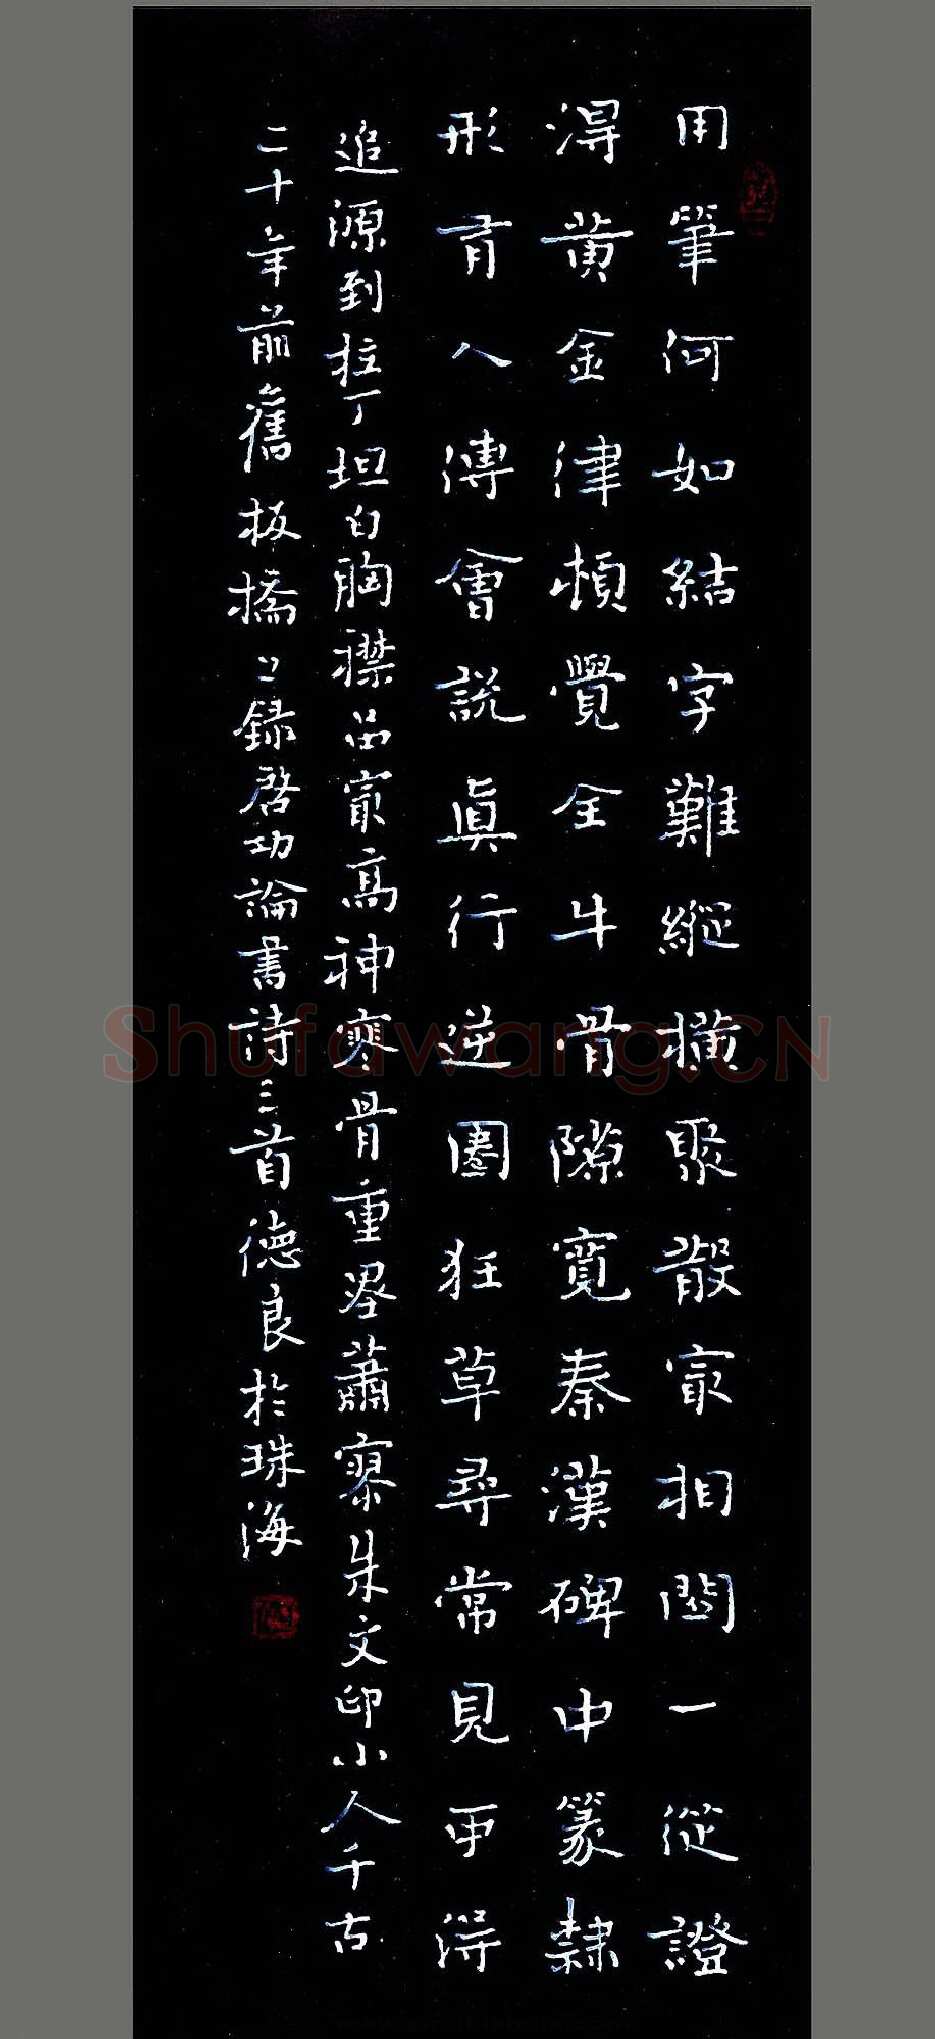 用筆何如結字難縱橫聚散最相關一從證
得黃金律頓覺全牛骨隙寬秦漢碑中篆隸
形有人傅會說真行逆圈狂草尋常見可得
追源到拉丁坦白胸襟品最高神寒骨重墨蕭寥朱文印小人千古
二十年前舊板橋錄啓功論書詩三首德良於珠海
Shufawang.CN